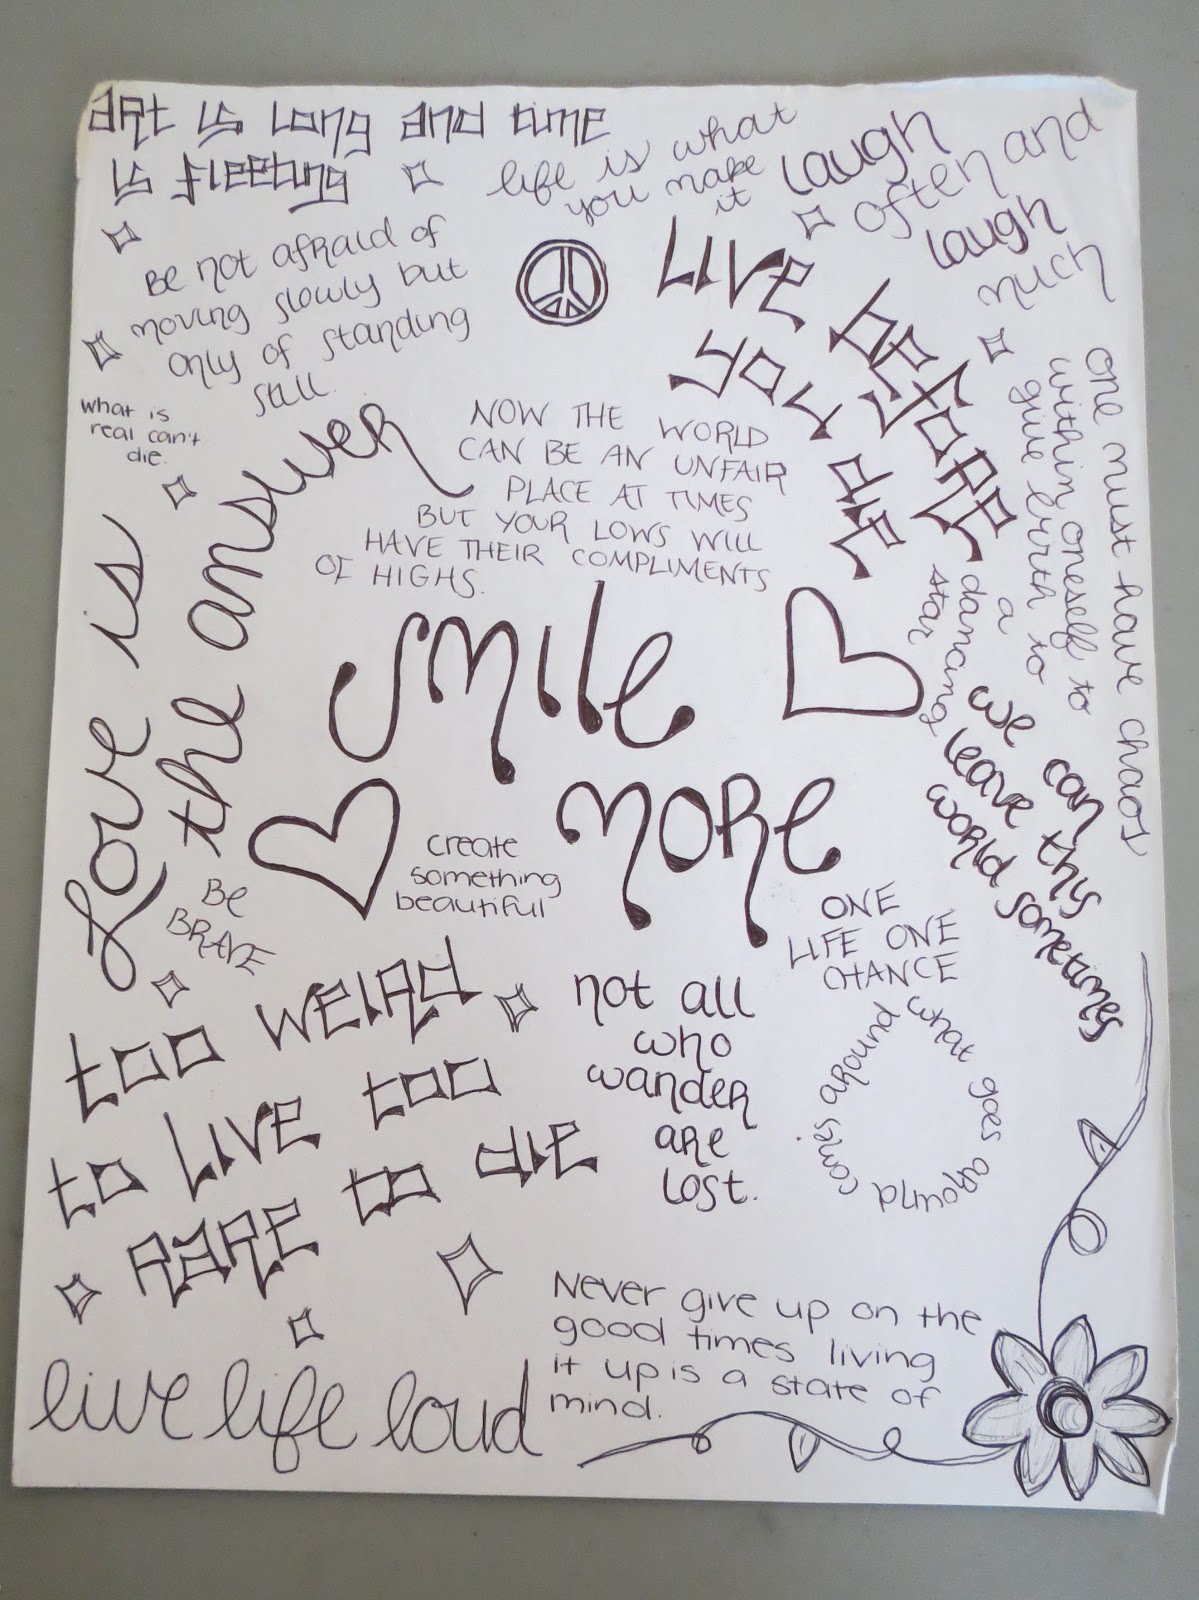 art is long and time
is fleeting
life is what
you make
it
laugh
often and
laugh
much
Be not afraid of
moving slowly but
only of standing
still.
Live before
you die
what is
real can't
die.
Love is
the answer
NOW THE WORLD
CAN BE AN UNFAIR
PLACE AT TIMES
BUT YOUR LOWS WILL
HAVE THEIR COMPLIMENTS
OF HIGHS.
one must have chaos
within oneself to
give birth to
a
dancing
star
SMILE
MORE
we can
leave this
world sometimes
create
something
beautiful
Be
BRAVE
ONE
LIFE ONE
CHANCE
too weird
to live too
rare to die
not all
who
wander
are
lost.
what goes around comis around
Never give up on the
good times living
it up is a state of
mind.
live life loud